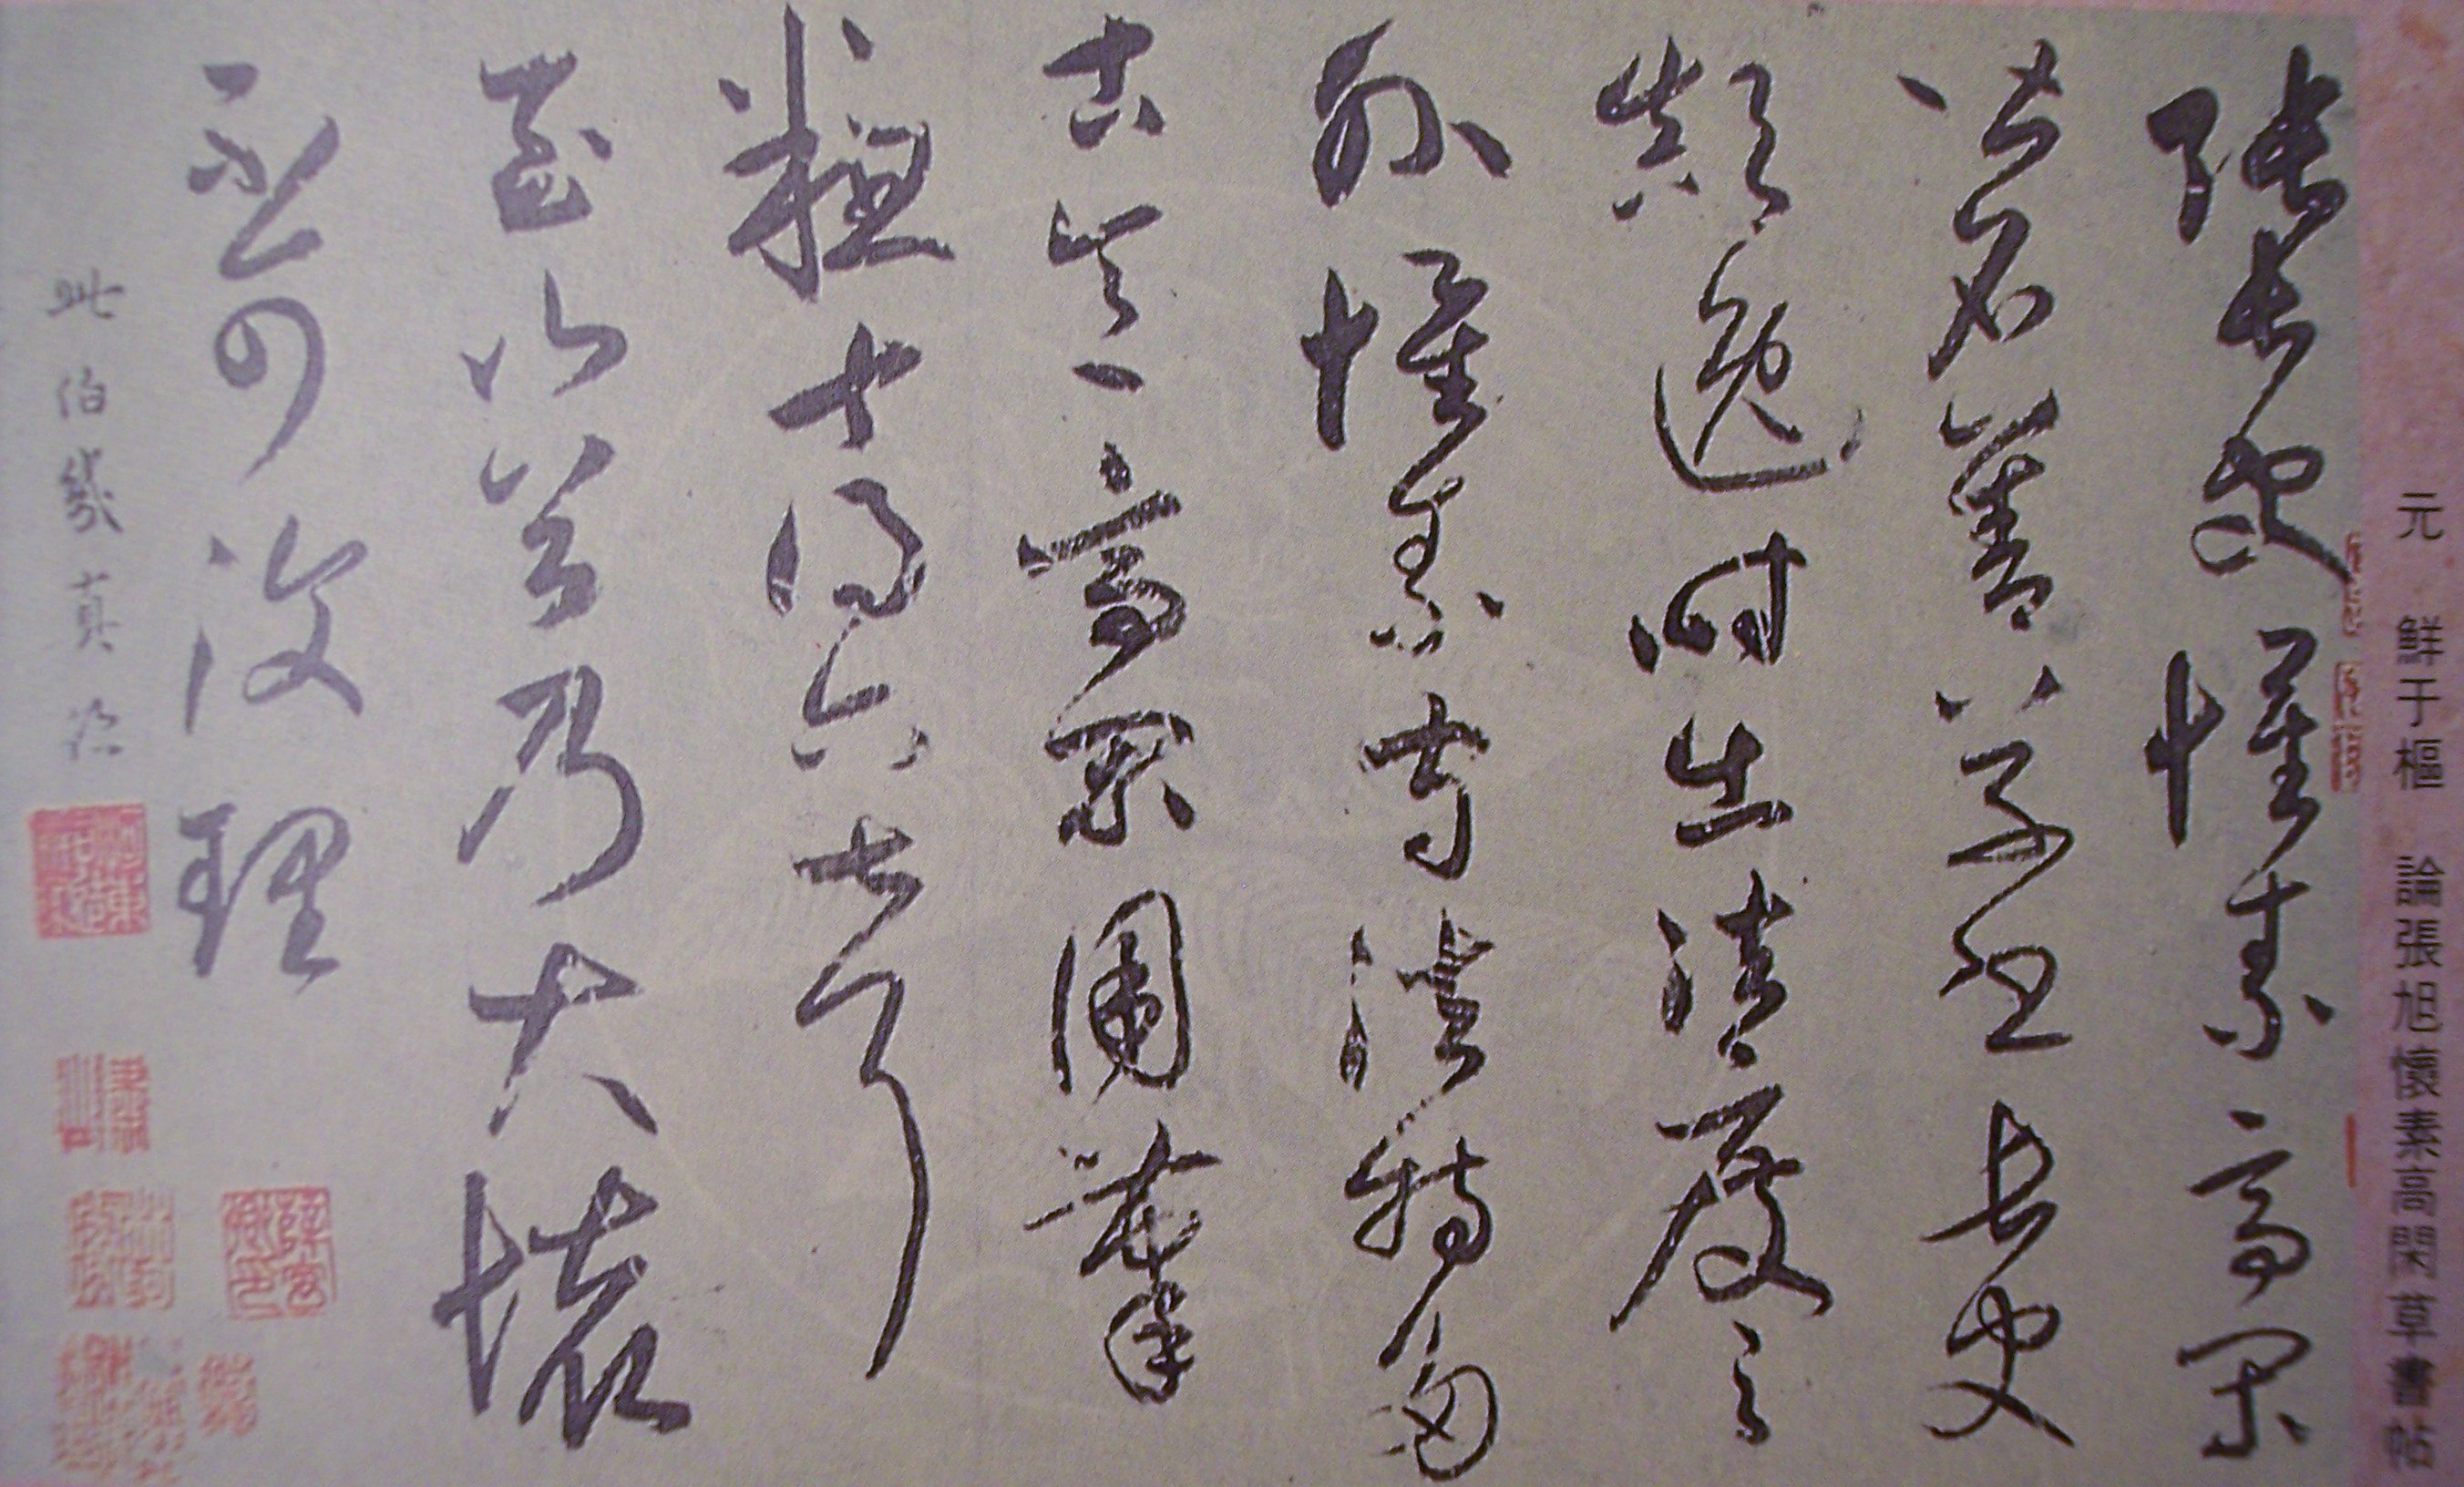 元 鮮于樞 論張旭懷素高閑草書帖
張長史懷素高閑
皆名善草書長史
顛逸時出法度之
外懷素守法特多
古意高閑用筆
粗十得六七耳
至山谷乃大壞
不可復理
此伯幾真跡